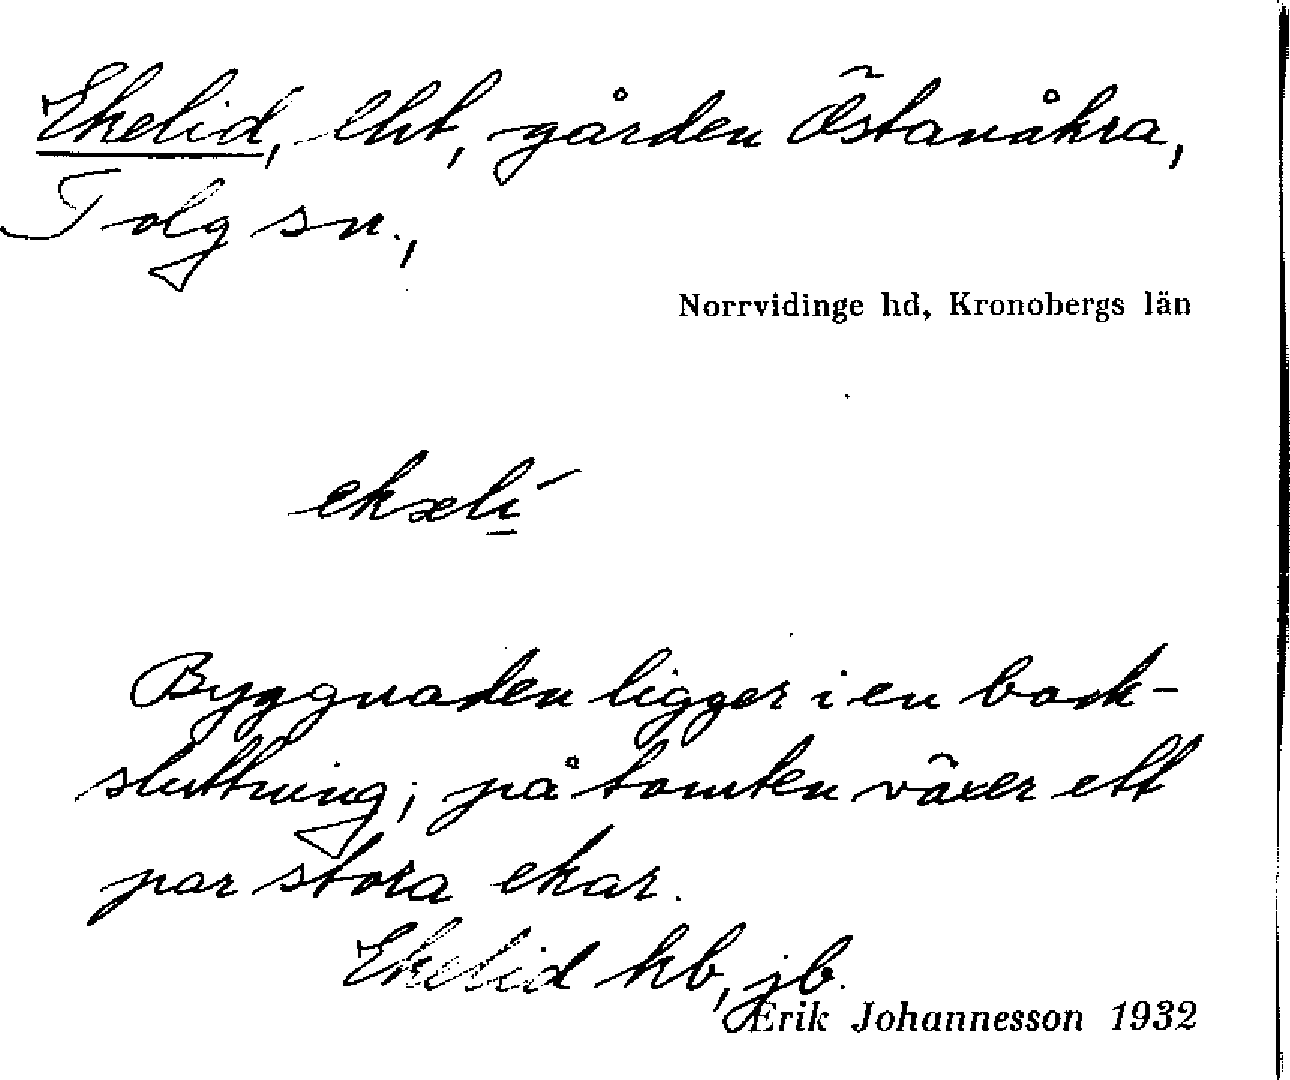 Ekelid, lht, gården Östanåkra,
Tolg sn.,
Norrvidinge hd, Kronobergs län
ekælí
Byggnaden ligger i en back-
sluttning; på tomten växer ett
par stora ekar.
Ekelid kb, jb.
Erik Johannesson 1932